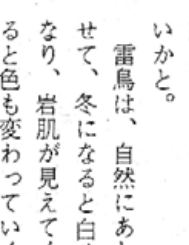 いかと。
雷鳥は、自然にあ
せて、冬になると白
なり、岩肌が見えて
ると色も変わってい